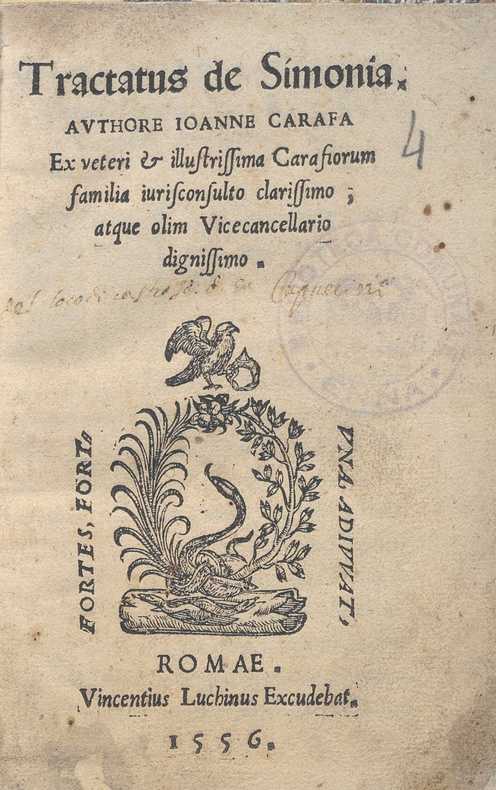 Tractatus de Simonia.
AVTHORE IOANNE CARAFA
Ex veteri & illuſtriſſima Carafiorum
familia iuriſconſulto clariſſimo ;
atque olim Vicecancellario
digniſſimo .
4
FORTES, FORT,
VNA ADIVVAT,
ROMAE .
Vincentius Luchinus Excudebat.
1556.